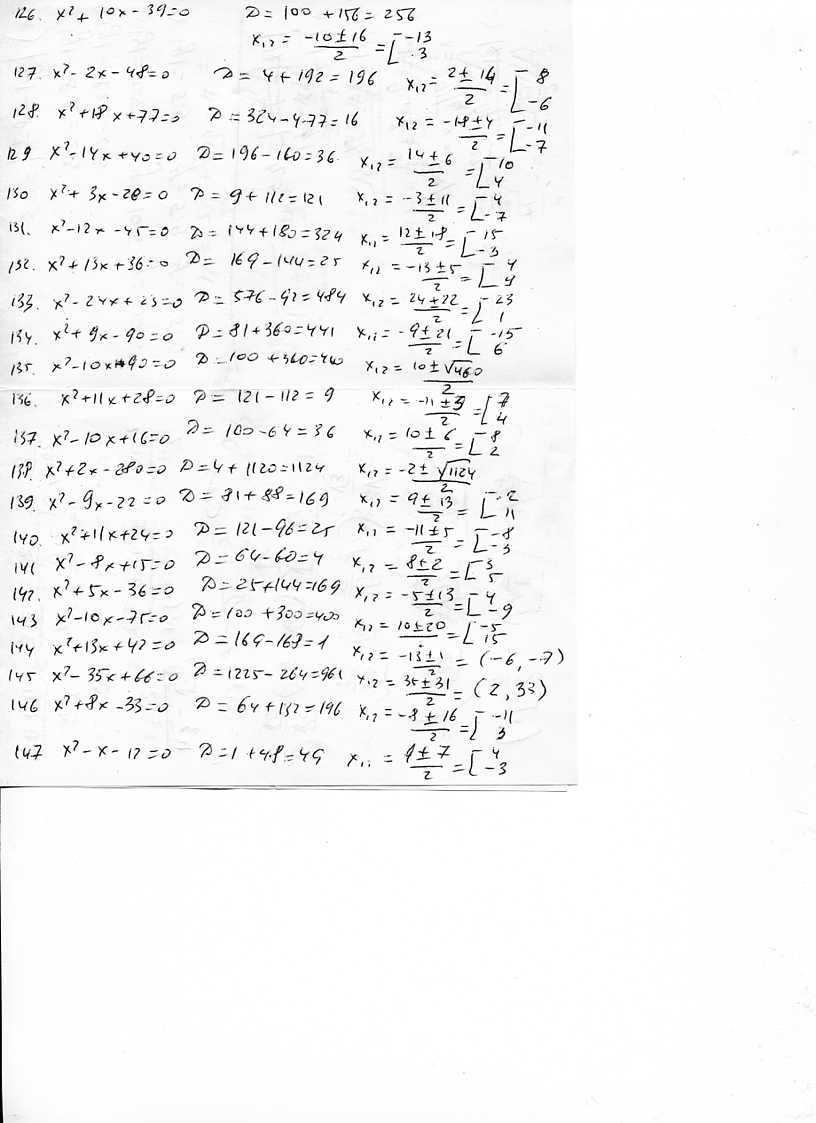 126. x²+ 10x - 39=0 D= 100 +156= 256
x₁,₂ = (-10±16)/2 = [-13 3
127. x²- 2x - 48=0 D= 4+192=196 x₁,₂= (2±14)/2 = [8 -6
128. x²+18x+77=0 D=324-4·77=16 x₁,₂ = (-18±4)/2 = [-11 -7
129 x²-14x+40=0 D=196-160=36 x₁,₂ = (14±6)/2 = [10 4
130 x²+ 3x-28=0 D= 9+112=121 x₁,₂ = (-3±11)/2 = [4 -7
131. x²-12x -45=0 D=144+180=324 x₁,₂= (12±18)/2 = [15 -3
132. x²+13x+36=0 D= 169-144=25 x₁,₂ = (-13±5)/2 = [4 9
133. x²-24x+23=0 D=576-92=484 x₁,₂= (24±22)/2 = [23 1
134. x²+9x-90=0 D=81+360=441 x₁,₂= (-9±21)/2 = [-15 6
135. x²-10x-90=0 D=100 +360=460 x₁,₂= (10±√460)/2
136. x²+11x+28=0 D= 121-112= 9 x₁,₂= (-11±3)/2 = [7 4
137. x²-10x+16=0 D= 100-64=36 x₁,₂= (10±6)/2 = [8 2
138. x²+2x-280=0 D=4+1120=1124 x₁,₂=(-2±√1124)/2
139. x²-9x-22=0 D=81+88=169 x₁,₂= (9±13)/2 = [-2 11
140. x²+11x+24=0 D= 121-96=25 x₁,₂= (-11±5)/2 = [-8 -3
141 x²-8x+15=0 D= 64-60=4 x₁,₂= (8±2)/2 = [3 5
142. x²+5x-36=0 D=25+144=169 x₁,₂= (-5±13)/2 = [4 -9
143 x²-10x-75=0 D=100+300=400 x₁,₂= (10±20)/2 = [-5 15
144 x²+13x+42=0 D=169-168=1 x₁,₂= (-13±1)/2 = (-6, -7)
145 x²-35x+66=0 D=1225-264=961 x₁,₂= (35±31)/2 = (2, 33)
146 x²+8x-33=0 D=64+132=196 x₁,₂= (-8±16)/2 = [-11 3
147 x²-x-12=0 D=1+48=49 x₁,₂ = (1±7)/2 = [4 -3